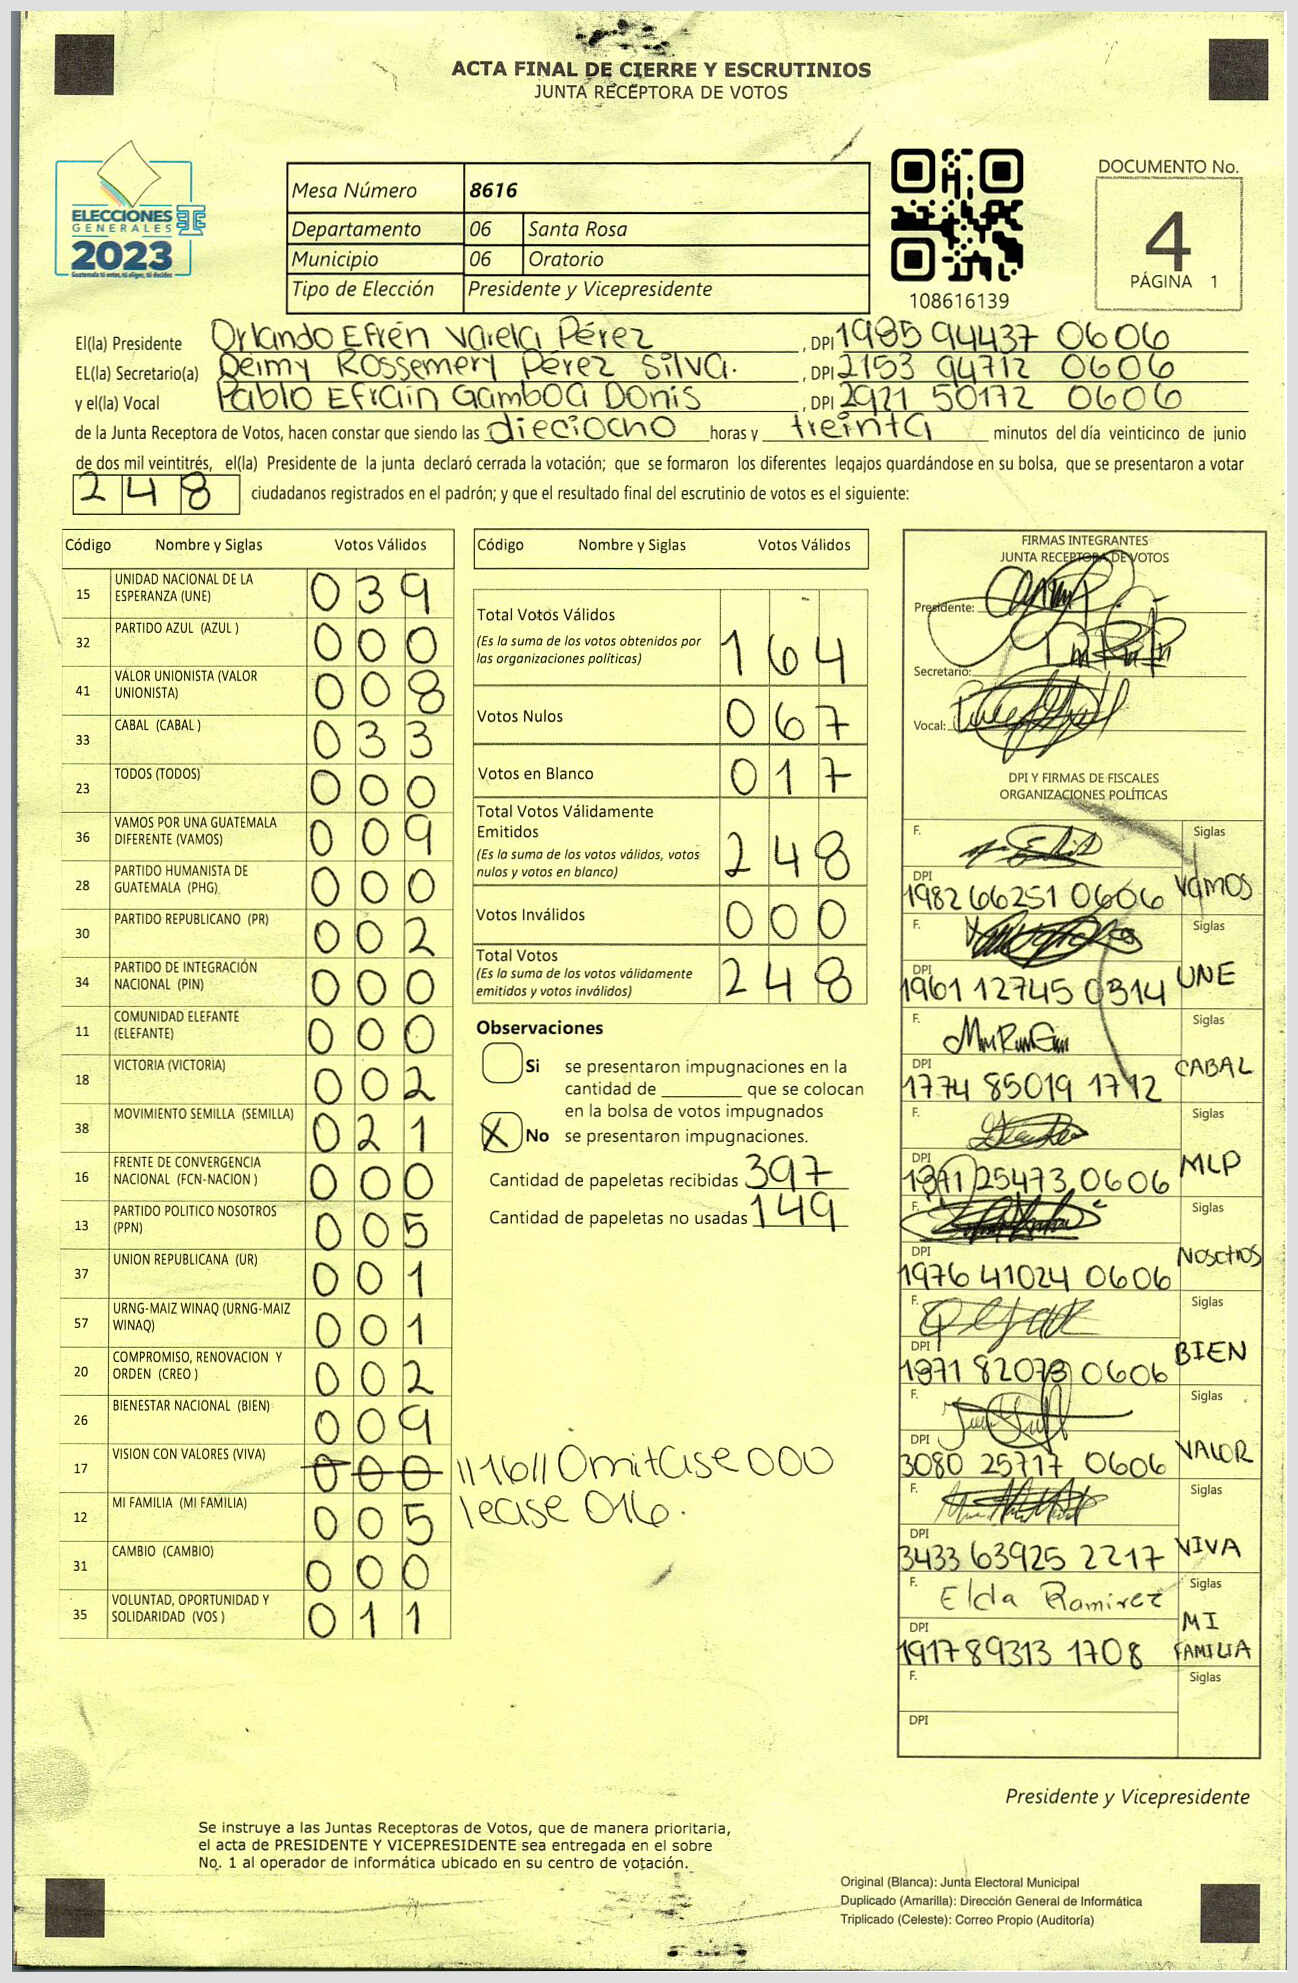 ACTA FINAL DE CIERRE Y ESCRUTINIOS
JUNTA RECEPTORA DE VOTOS
ELECCIONES
GENERALES
2023
Guatemala tú votas, tú eliges, tú decides
Mesa Número 8616
Departamento 06 Santa Rosa
Municipio 06 Oratorio
Tipo de Elección Presidente y Vicepresidente
108616139
DOCUMENTO No.
4
PÁGINA 1
El(la) Presidente Orlando Efrén Varela Pérez, DPI 1985 94437 0606
EL(la) Secretario(a) Deimy Rossemery Pérez Silva., DPI 2153 94712 0606
y el(la) Vocal Pablo Efraín Gamboa Donis, DPI 2921 50172 0606
de la Junta Receptora de Votos, hacen constar que siendo las dieciocho horas y treinta minutos del día veinticinco de junio
de dos mil veintitrés, el(la) Presidente de la junta declaró cerrada la votación; que se formaron los diferentes legajos guardándose en su bolsa, que se presentaron a votar
248 ciudadanos registrados en el padrón; y que el resultado final del escrutinio de votos es el siguiente:
Código Nombre y Siglas Votos Válidos
15 UNIDAD NACIONAL DE LA ESPERANZA (UNE) 039
32 PARTIDO AZUL (AZUL ) 000
41 VALOR UNIONISTA (VALOR UNIONISTA) 008
33 CABAL (CABAL ) 033
23 TODOS (TODOS) 000
36 VAMOS POR UNA GUATEMALA DIFERENTE (VAMOS) 009
28 PARTIDO HUMANISTA DE GUATEMALA (PHG) 000
30 PARTIDO REPUBLICANO (PR) 002
34 PARTIDO DE INTEGRACIÓN NACIONAL (PIN) 000
11 COMUNIDAD ELEFANTE (ELEFANTE) 000
18 VICTORIA (VICTORIA) 002
38 MOVIMIENTO SEMILLA (SEMILLA) 021
16 FRENTE DE CONVERGENCIA NACIONAL (FCN-NACION ) 000
13 PARTIDO POLITICO NOSOTROS (PPN) 005
37 UNION REPUBLICANA (UR) 001
57 URNG-MAIZ WINAQ (URNG-MAIZ WINAQ) 001
20 COMPROMISO, RENOVACION Y ORDEN (CREO ) 002
26 BIENESTAR NACIONAL (BIEN) 009
17 VISION CON VALORES (VIVA) 000 ||16|| Omitase 000
lease 016.
12 MI FAMILIA (MI FAMILIA) 005
31 CAMBIO (CAMBIO) 000
35 VOLUNTAD, OPORTUNIDAD Y SOLIDARIDAD (VOS ) 011
Código Nombre y Siglas Votos Válidos
Total Votos Válidos
(Es la suma de los votos obtenidos por las organizaciones políticas) 164
Votos Nulos 067
Votos en Blanco 017
Total Votos Válidamente Emitidos
(Es la suma de los votos válidos, votos nulos y votos en blanco) 248
Votos Inválidos 000
Total Votos
(Es la suma de los votos válidamente emitidos y votos inválidos) 248
Observaciones
Si se presentaron impugnaciones en la
cantidad de ________ que se colocan
en la bolsa de votos impugnados
X No se presentaron impugnaciones.
Cantidad de papeletas recibidas 397
Cantidad de papeletas no usadas 149
FIRMAS INTEGRANTES
JUNTA RECEPTORA DE VOTOS
Presidente:
Secretario:
Vocal:
DPI Y FIRMAS DE FISCALES
ORGANIZACIONES POLÍTICAS
F. Siglas
DPI 1982 66251 0606 VAMOS
F. Siglas
DPI 1961 12745 0314 UNE
F. Siglas
DPI 1774 85019 1712 CABAL
F. Siglas
DPI 1971 25473 0606 MLP
F. Siglas
DPI 1976 41024 0606 NOSOTROS
F. Siglas
DPI 1971 82073 0606 BIEN
F. Siglas
DPI 3080 25717 0606 VALOR
F. Siglas
DPI 3433 63925 2217 VIVA
F. Elda Ramirez Siglas
DPI 1917 89313 1708 MI FAMILIA
F. Siglas
DPI
Presidente y Vicepresidente
Se instruye a las Juntas Receptoras de Votos, que de manera prioritaria,
el acta de PRESIDENTE Y VICEPRESIDENTE sea entregada en el sobre
No. 1 al operador de informática ubicado en su centro de votación.
Original (Blanca): Junta Electoral Municipal
Duplicado (Amarilla): Dirección General de Informática
Triplicado (Celeste): Correo Propio (Auditoría)